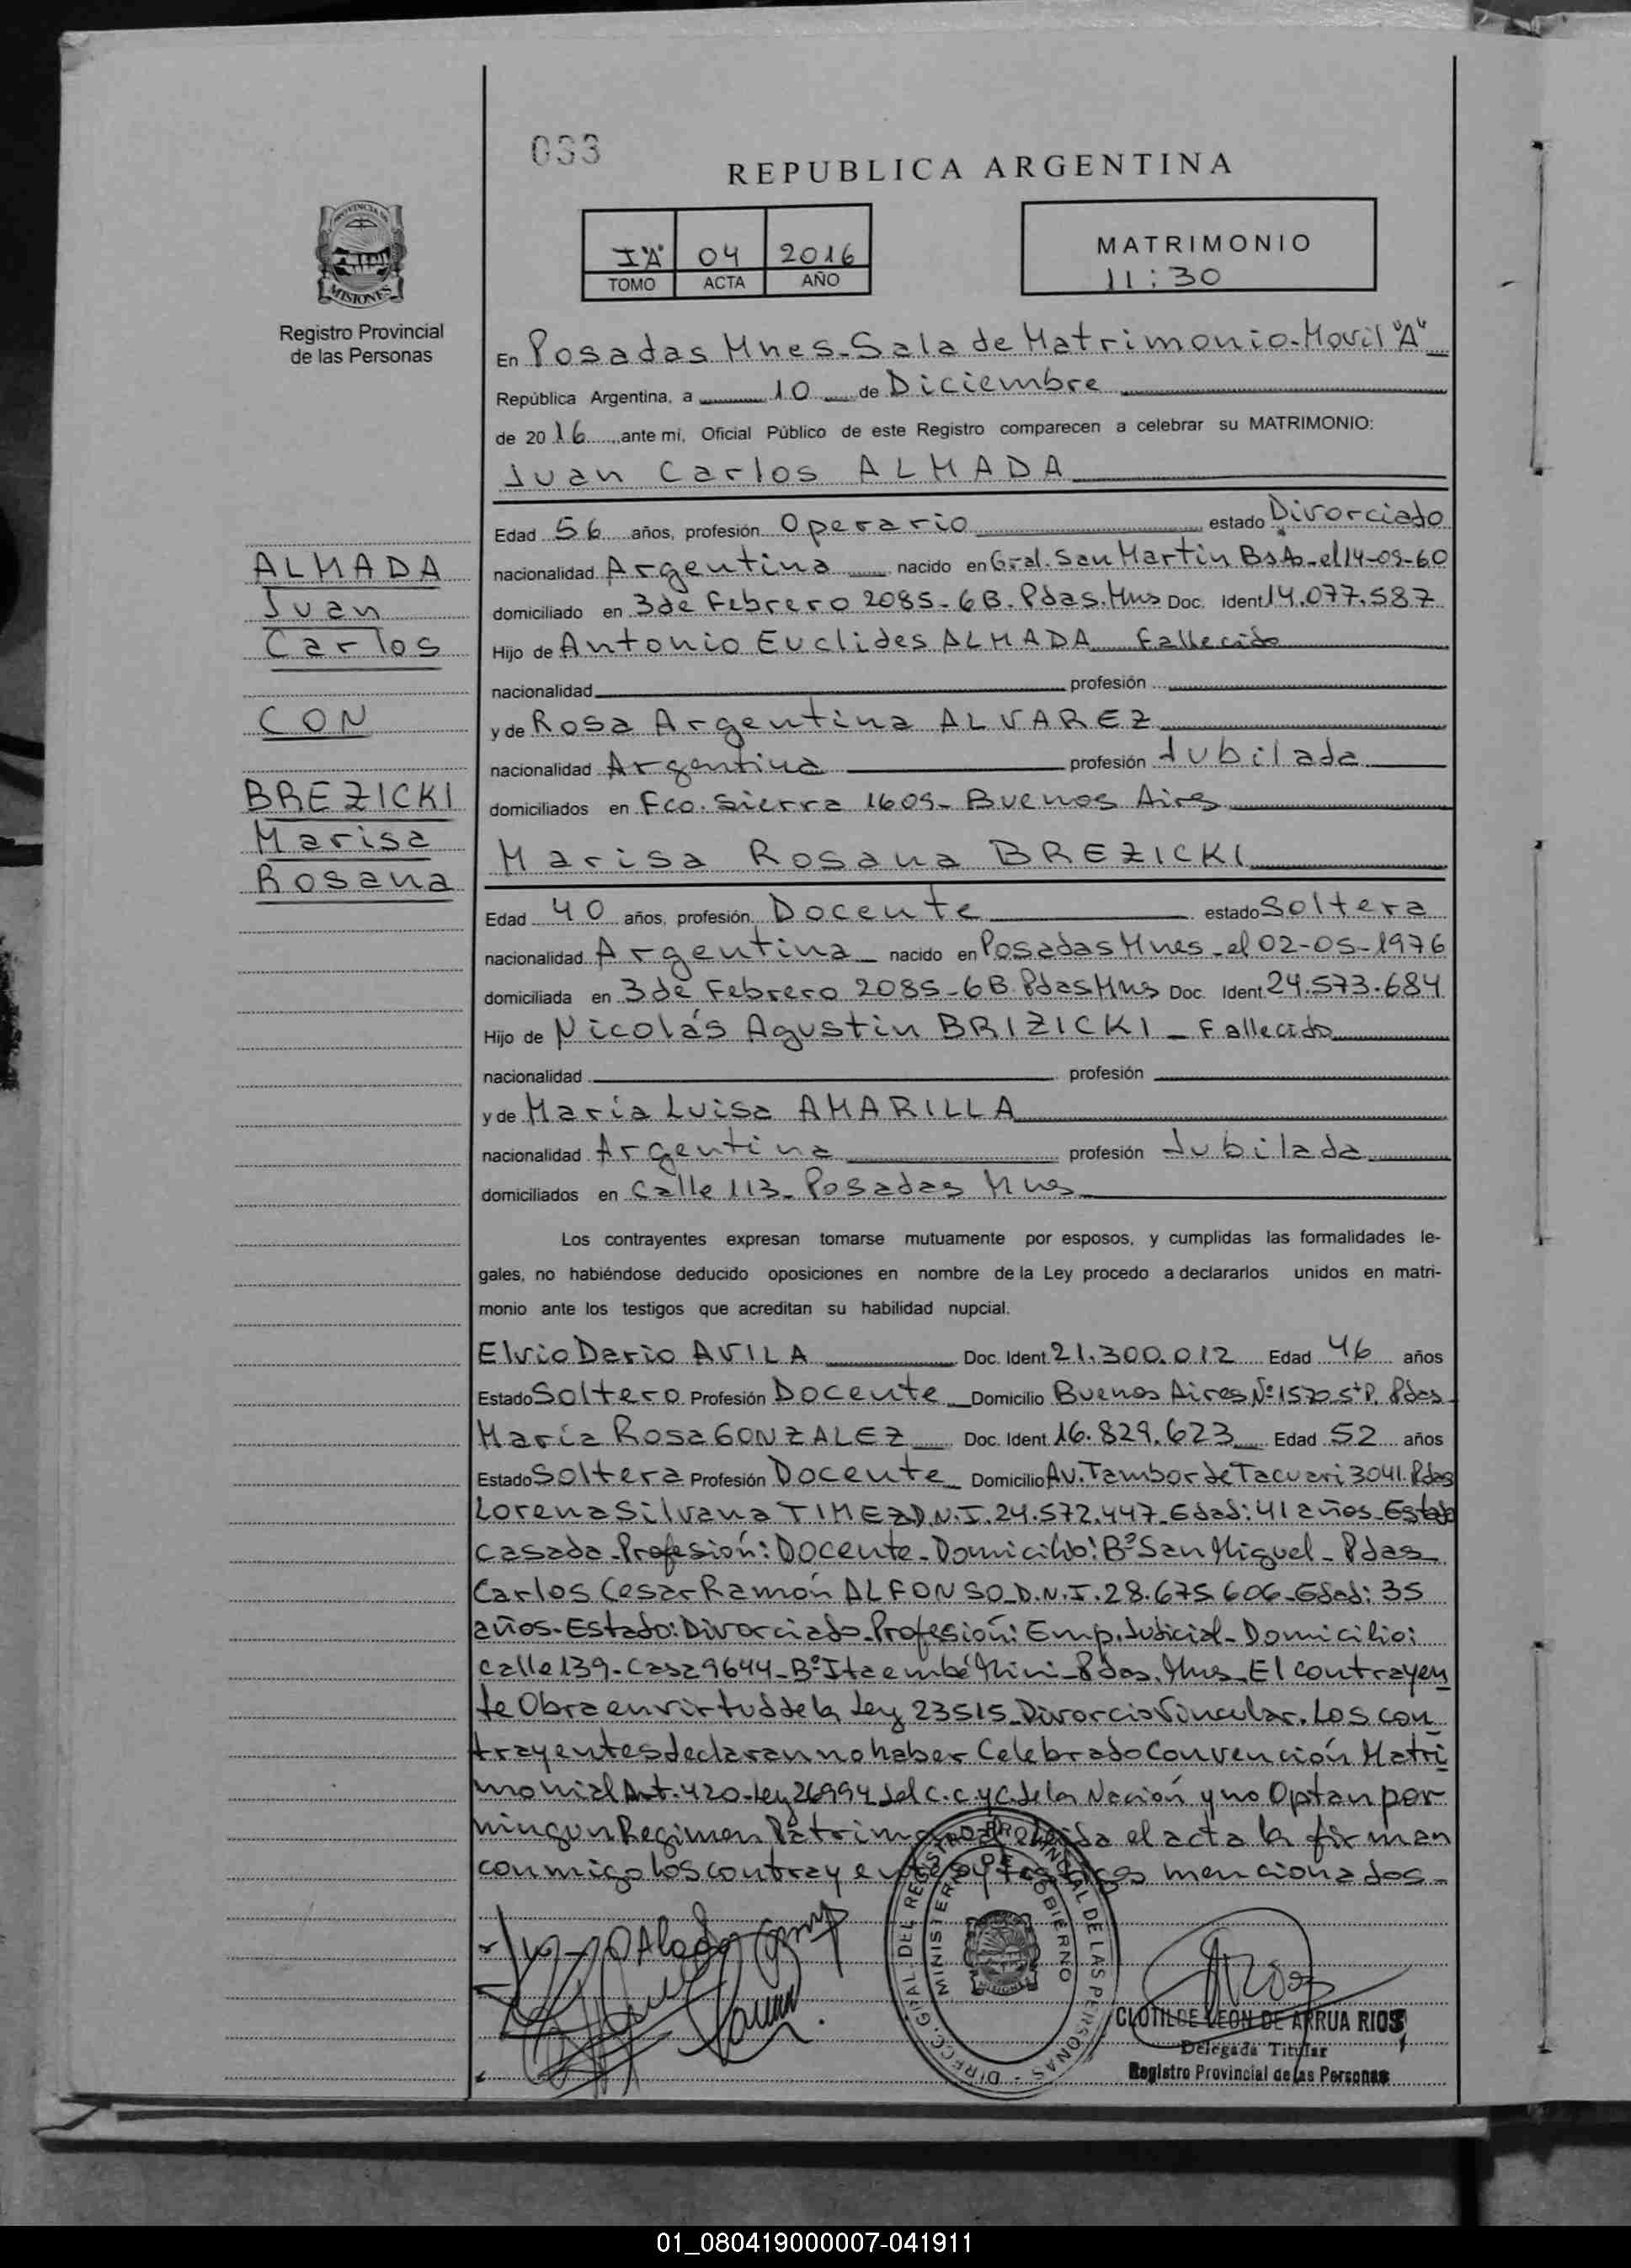 033
REPUBLICA ARGENTINA
I"A" 04 2016
TOMO ACTA AÑO
MATRIMONIO
11:30
PROVINCIA DE
MISIONES
Registro Provincial
de las Personas
En Posadas Mnes-Sala de Matrimonio-Movil "A"
República Argentina, a 10 de Diciembre
de 2016, ante mí, Oficial Público de este Registro comparecen a celebrar su MATRIMONIO:
Juan Carlos ALMADA
Edad 56 años, profesión Operario estado Divorciado
nacionalidad Argentina nacido en Gral. San Martin Bs As-el 14-09-60
domiciliado en 3 de Febrero 2085-6B. Pdas. Mns Doc. Ident 14.077.587
Hijo de Antonio Euclides ALMADA Fallecido
nacionalidad profesión
y de Rosa Argentina ALVAREZ
nacionalidad Argentina profesión Jubilada
domiciliados en Fco. Sierra 1609- Buenos Aires
ALMADA
Juan
Carlos
CON
BREZICKI
Marisa
Rosana
Marisa Rosana BREZICKI
Edad 40 años, profesión Docente estado Soltera
nacionalidad Argentina nacido en Posadas Mnes-el 02-05-1976
domiciliada en 3 de Febrero 2085-6B Pdas Mns Doc. Ident. 24.573.684
Hijo de Nicolás Agustin BRIZICKI - Fallecido
nacionalidad profesión
y de María Luisa AMARILLA
nacionalidad Argentina profesión Jubilada
domiciliados en Calle 113- Posadas Mns
Los contrayentes expresan tomarse mutuamente por esposos, y cumplidas las formalidades le-
gales, no habiéndose deducido oposiciones en nombre de la Ley procedo a declararlos unidos en matri-
monio ante los testigos que acreditan su habilidad nupcial.
Elvio Dario AVILA Doc. Ident. 21.300.012 Edad 46 años
Estado Soltero Profesión Docente Domicilio Buenos Aires Nº 1570 5ºP. Pdas
María Rosa GONZALEZ Doc. Ident. 16.829.623 Edad 52 años
Estado Soltera Profesión Docente Domicilio Av. Tambor de Tacuari 3041. Pdas
Lorena Silvana TIMEZ D.N.I. 24.572.447-Edad: 41 años-Estado
Casada-Profesión: Docente-Domicilio: Bº San Miguel-Pdas
Carlos Cesar Ramón ALFONSO-D.N.I. 28.675.606-Edad: 35
años-Estado: Divorciado-Profesión: Emp. Judicial-Domicilio:
Calle 139-Casa 9644-Bº Itaembé Mini-Pdas. Mns-El contrayen
te Obra en virtud de la Ley 23515-Divorcio Vincular. Los con
trayentes declaran no haber Celebrado Convención Matri
monial Art. 420-Ley 26994 del C.C. y C. de la Nación y no Optan por
ningun Regimen Patrimonial leida el acta la firman
conmigo los contrayentes y testigos mencionados-
DIRECC. GRAL. DEL REGISTRO PROVINCIAL DE LAS PERSONAS
MINISTERIO DE GOBIERNO
CLOTILDE LEON DE ARRUA RIOS
Delegada Titular
Registro Provincial de las Personas
01_080419000007-041911